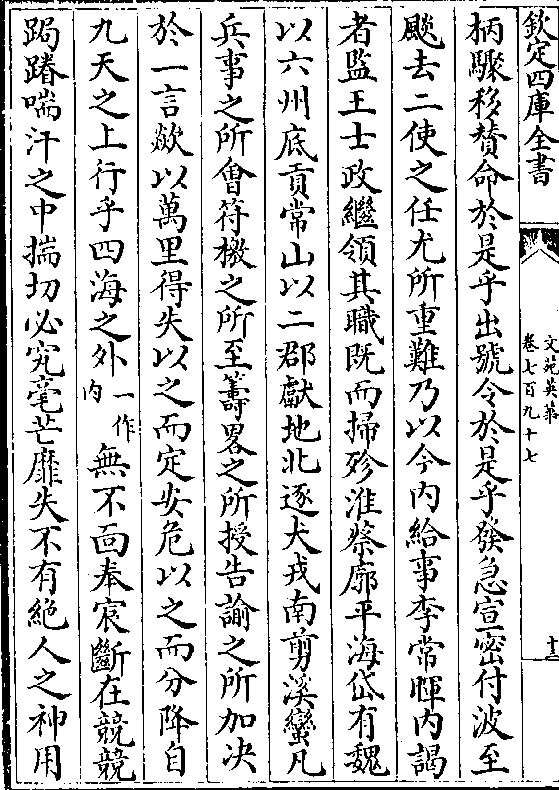 欽定四庫全書
文苑英華
卷七百九十七
十三
柄驟移贊命於是乎出號令於是乎發急宣密付波至
颷去二使之任尤所重難乃以今内給事李常暉内謁
者監王士政繼領其職既而掃殄淮蔡廓平海岱有魏
以六州底貢常山以二郡獻地北逐犬戎南剪溪蠻凡
兵事之所㑹符檄之所至籌畧之所授告諭之所加决
於一言歘以萬里得失以之而定安危以之而分降自
九天之上行乎四海之外一作内無不面奉宸斷在競競
跼蹐喘汗之中揣切必究毫芒靡失不有絶人之神用